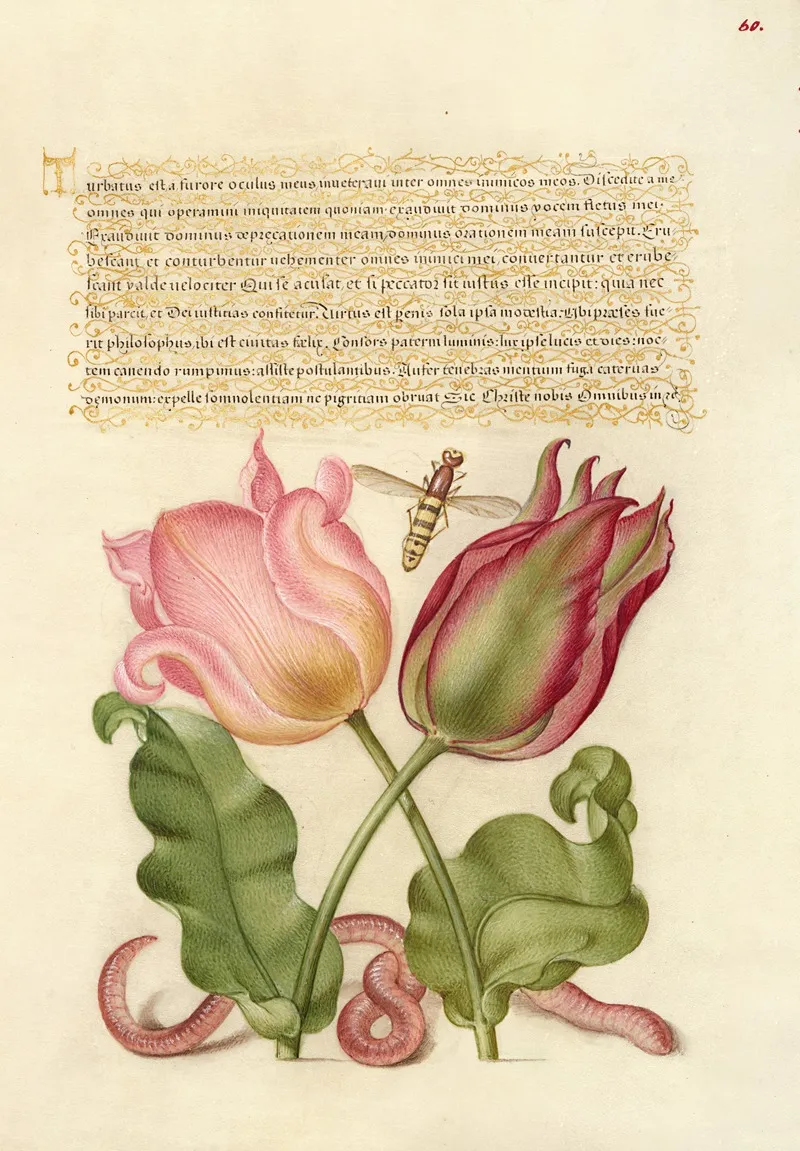 60.
Turbatus est a furore oculus meus inueteraui inter omnes inimicos meos. Discedite a me
omnes qui operamini iniquitatem quoniam exaudiuit dominus vocem fletus mei.
Exaudiuit dominus deprecationem meam, dominus orationem meam suscepit. Eru-
bescant, et conturbentur uehementer omnes inimici mei, conuertantur et erube-
scant valde uelociter Qui se acusat, et si peccator sit iustus esse incipit: quia nec
sibi parcit, et Dei iustitias confitetur. Virtus est penis sola ipsa modestia. Vbi præses fue-
rit philosophus, ibi est ciuitas fœlix. Consors paterni luminis: lux ipse lucis et dies: noc-
tem canendo rumpimus: assiste postulantibus. Aufer tenebras mentium fuga cateruas
demonum: expelle somnolentiam ne pigritiam obruat Sic Christe nobis Omnibus in